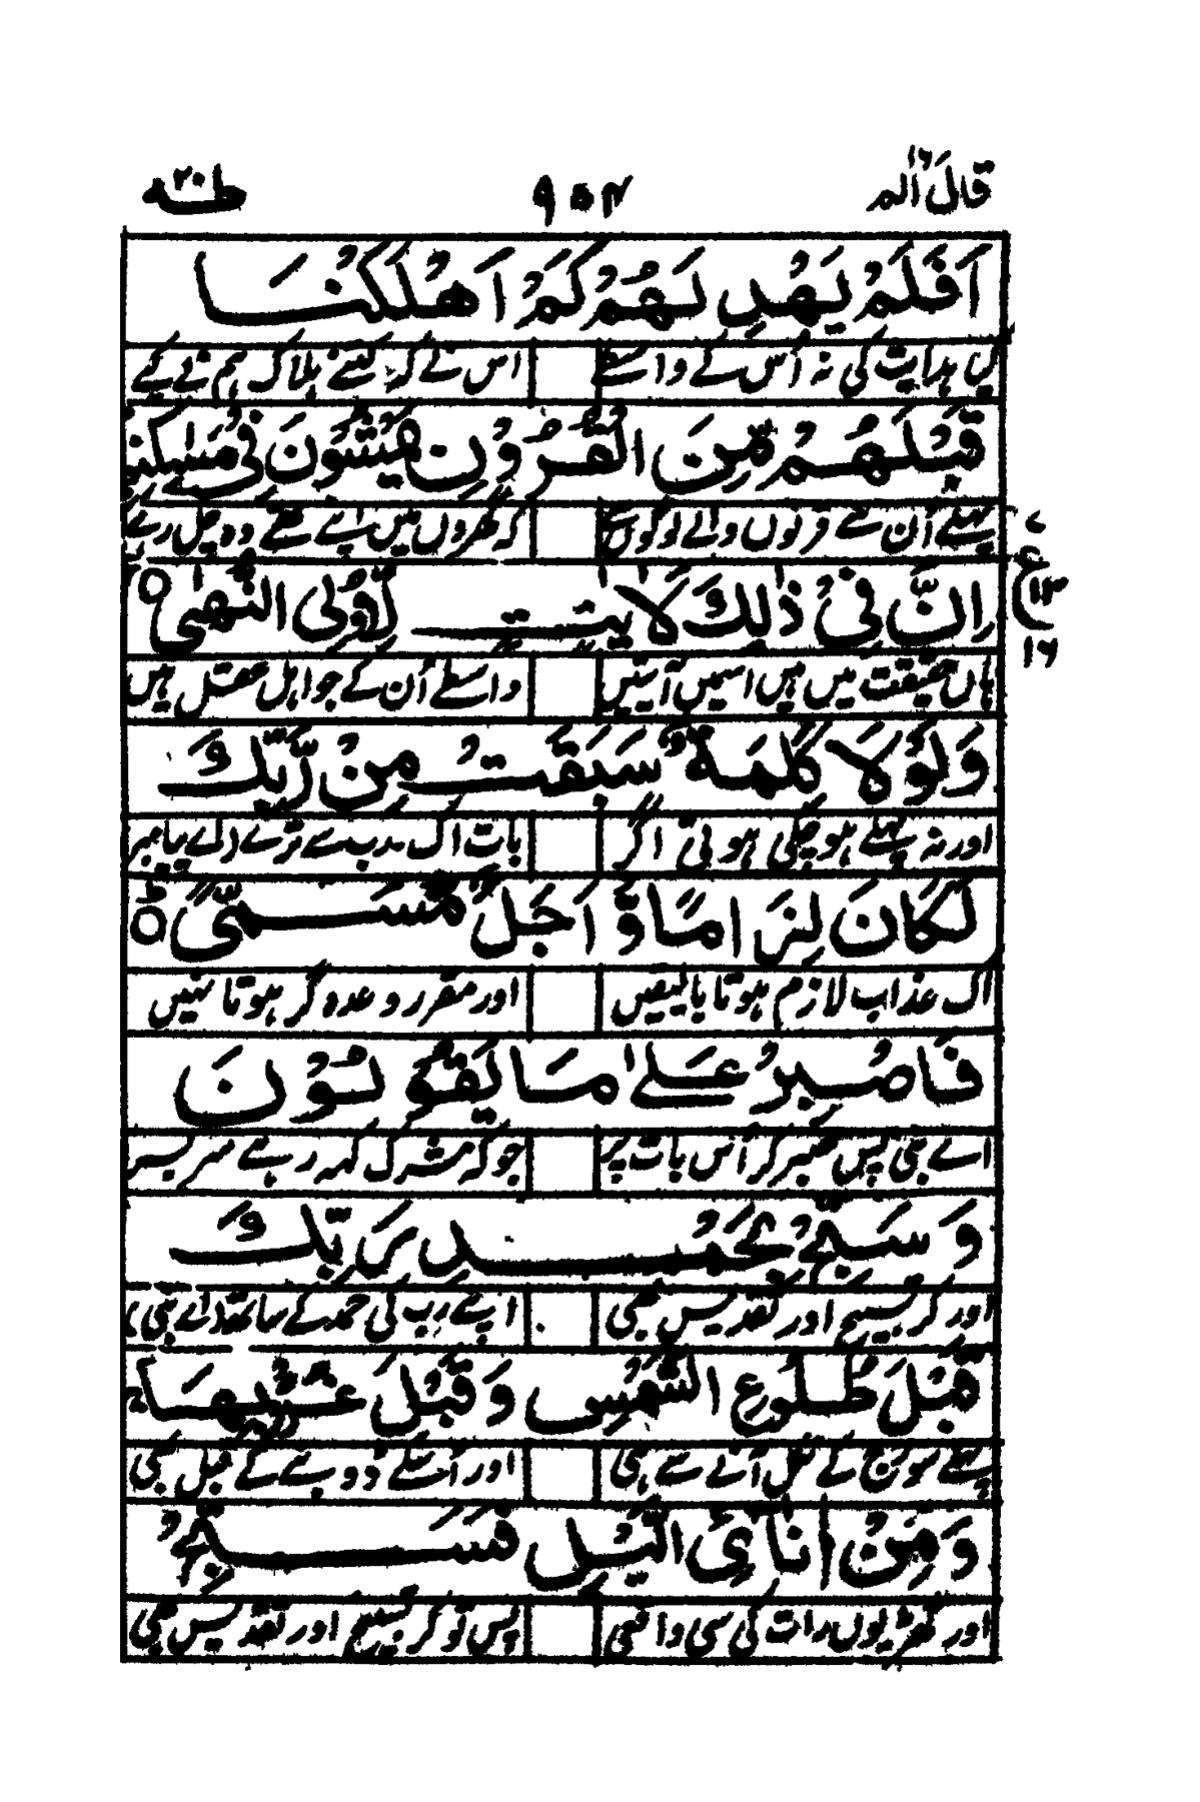 قَالَ اَلَم ١٦ ٩٥٣ طٰهٰ ٢٠
اَفَلَمْ يَهْدِ لَهُمْ كَمْ اَهْلَكْنَا
کی ہدایت کی نہ اُس کے واسطے اس نے کہ کتنے ہلاک ہم نے کیے
قَبْلَهُمْ مِّنَ الْقُرُوْنِ يَمْشُوْنَ فِيْ مَسٰكِنِهِمْ
پہلے اُن سے قرنوں والے لوگوں کے کہ گھروں میں اپنے تھے وہ چل رہے
اِنَّ فِيْ ذٰلِكَ لَاٰيٰتٍ لِّاُولِي النُّهٰى
ہاں حقیقت میں ہیں اسمیں آیتیں واسطے اُن کے جو اہل عقل ہیں
وَلَوْلَا كَلِمَةٌ سَبَقَتْ مِنْ رَّبِّكَ
اور نہ پہلے ہو چکی ہوتی اگر بات اک رب سے ترے اے پیامبر
لَكَانَ لِزَامًا وَّ اَجَلٌ مُّسَمًّى
اک عذاب لازم ہوتا بالیقیں اور مقرر وعدہ گر ہوتا نہیں
فَاصْبِرْ عَلٰى مَا يَقُوْلُوْنَ
اے نبی پس صبر کر اُس بات پر جو کہ مشرک کہہ رہے سر بسر
وَ سَبِّحْ بِحَمْدِ رَبِّكَ
اور کر تسبیح اور تقدیس بھی اپنے رب کی حمد کے ساتھ اے نبی
قَبْلَ طُلُوْعِ الشَّمْسِ وَ قَبْلَ غُرُوْبِهَا
پہلے سورج کے نکل آنے سے بھی اور اُسکے ڈوبنے کے قبل بھی
وَ مِنْ اٰنَآئِ الَّيْلِ فَسَبِّحْ
اور گھڑیوں رات کی سی واقعی پس تو کر تسبیح اور تقدیس بھی